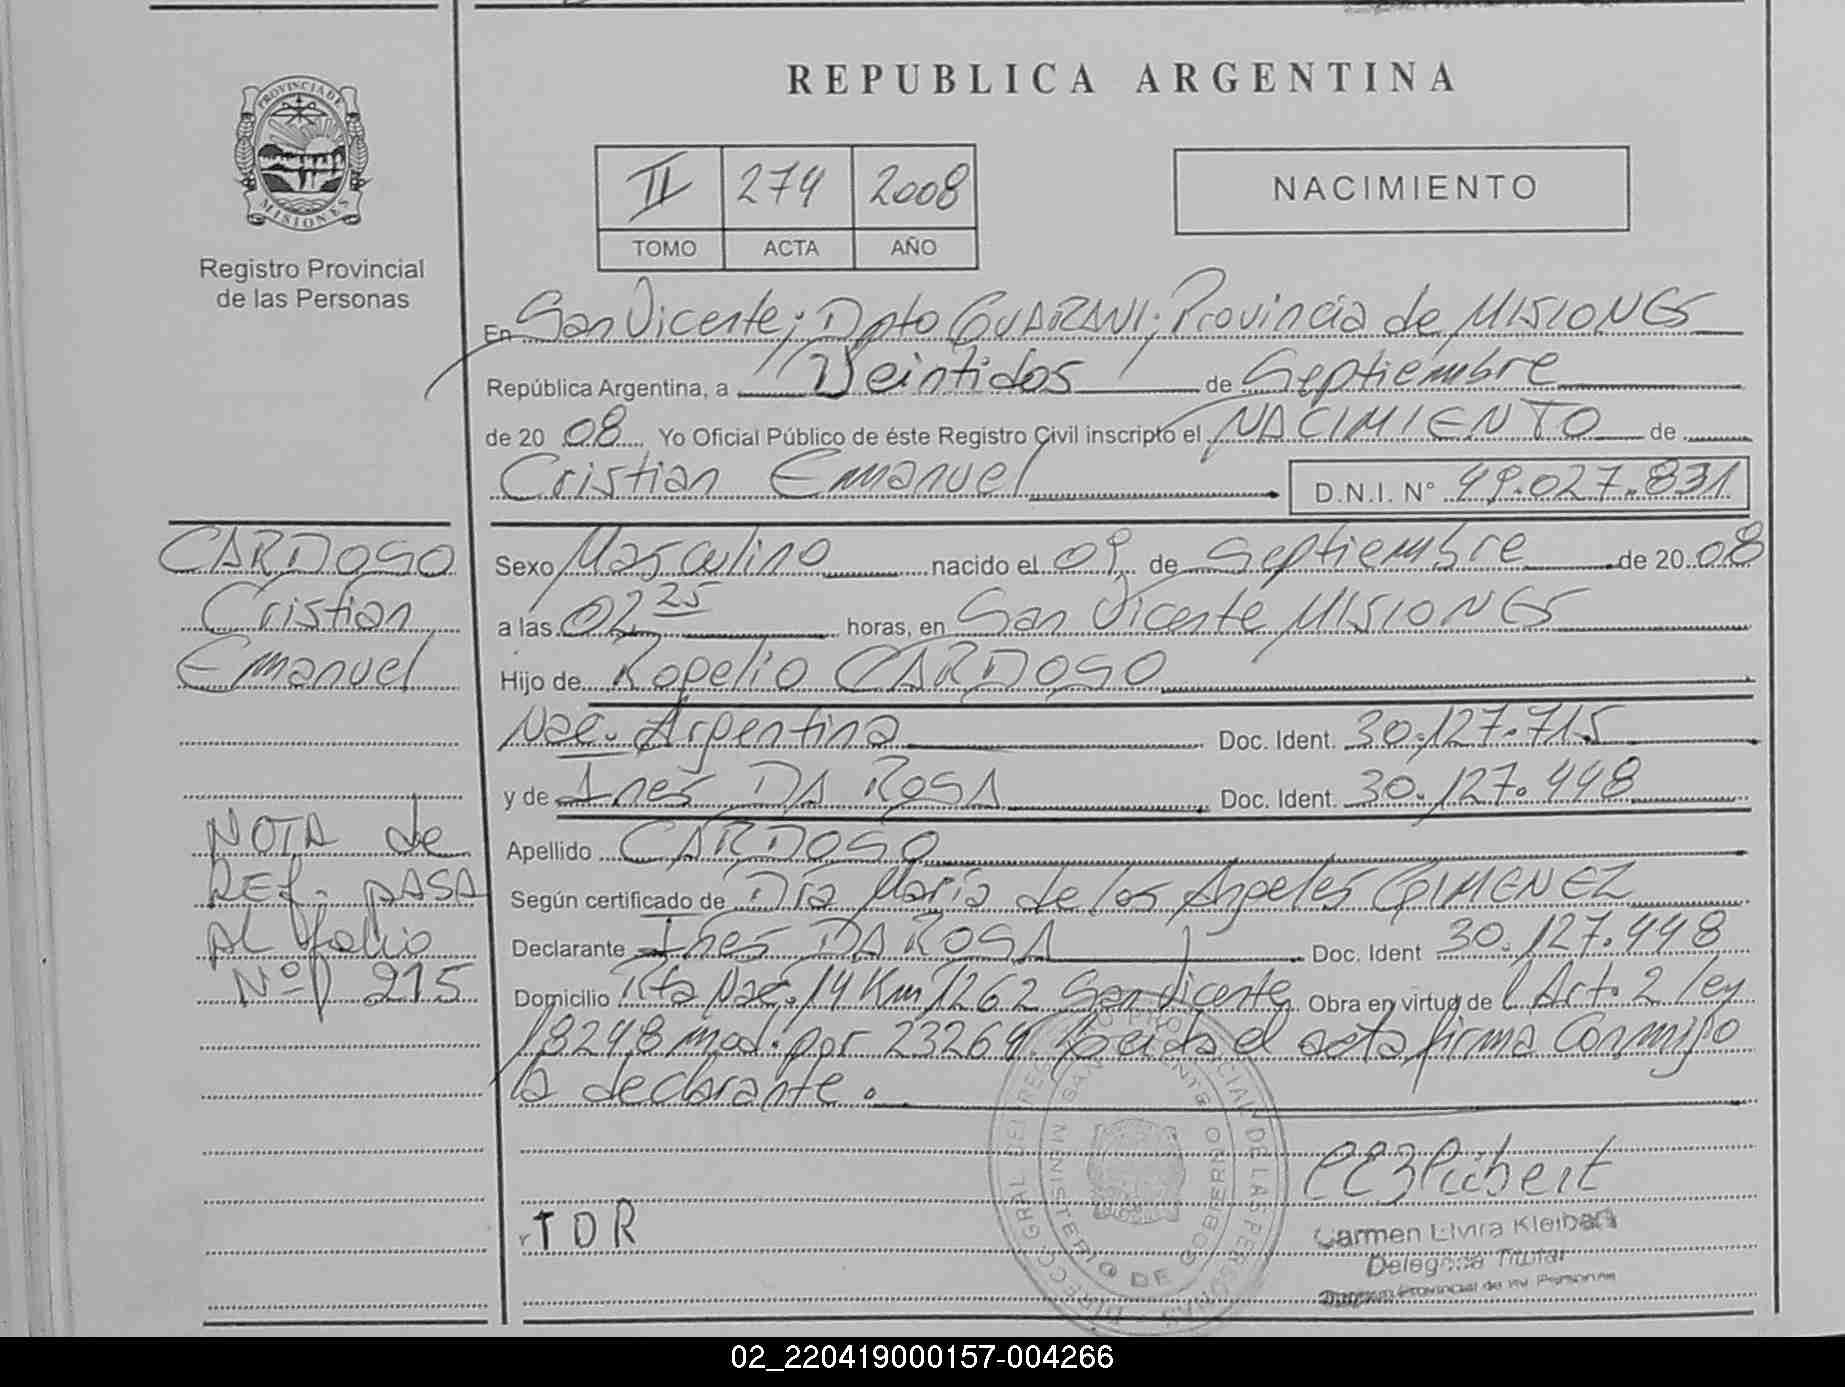 REPUBLICA ARGENTINA
PROVINCIA DE
MISIONES
Registro Provincial
de las Personas
II 274 2008
TOMO ACTA AÑO
NACIMIENTO
En San Vicente; Dpto GUARANI; Provincia de MISIONES
República Argentina, a Veintidos de Septiembre
de 20 08 Yo Oficial Público de éste Registro Civil inscripto el NACIMIENTO de
Cristian Emanuel D.N.I. N° 49.027.831
CARDOSO
Cristian
Emanuel
Sexo Masculino nacido el 09 de Septiembre de 20 08
a las 02 25 horas, en San Vicente MISIONES
Hijo de Rogelio CARDOSO
Nac. Argentina Doc. Ident. 30.127.715
y de Ines DA ROSA Doc. Ident. 30.127.448
Apellido CARDOSO
Según certificado de Dra María de los Angeles GIMENEZ
Declarante Ines DA ROSA Doc. Ident 30.127.448
Domicilio Rta Nac. 14 Km 1262 San Vicente Obra en virtud de l Art. 2 ley
18248 mod. por 23264. Leida el acta firma conmigo
la declarante.
NOTA de
REF. PASA
AL folio
Nº 215
TDR
Carmen Elvira
Delegada Titular
Provincial de las Personas
DIRECC. GRAL DEL REGISTRO PROVINCIAL DE LAS PERSONAS
MINISTERIO DE GOBIERNO
SAN VICENTE
02_220419000157-004266